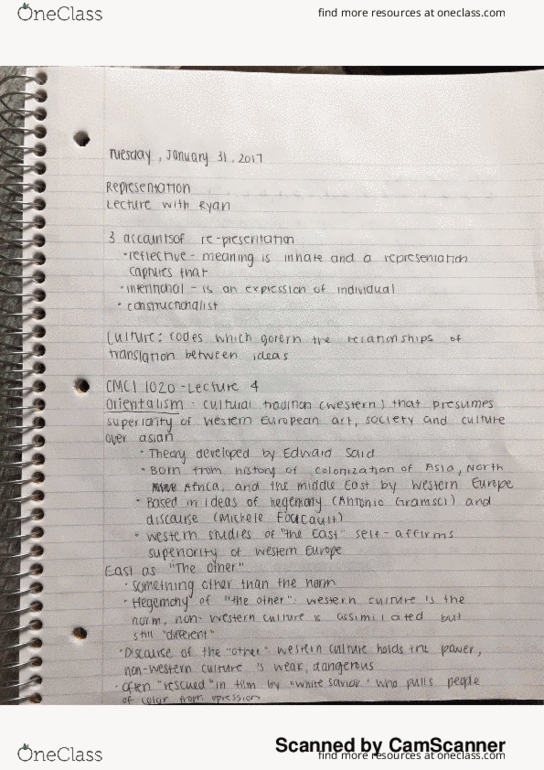 OneClass
find more resources at oneclass.com
Tuesday, January 31, 2017
Representation
Lecture with Ryan
3 accounts of re-presentation
• reflective - meaning is inhate and a representation
captures that
• intentional - is an expression of individual
• constructionalist
Culture: codes which govern the relationships of
translation between ideas
CMCI 1020 - Lecture 4
Orientalism: cultural tradition (western) that presumes
superiority of western European art, society and culture
over asian
• Theory developed by Edward Said
• Born from history of colonization of Asia, North
Africa, and the middle East by western Europe
• Based in ideas of hegemony (Antonio Gramsci) and
discourse (Michele Foucault)
• western studies of "the East" self-affirms
superiority of western Europe
East as "The other"
• something other than the norm
• Hegemony of "the other": western culture is the
norm, non-western culture is assimilated but
still "different"
• Discourse of the "other" western culture holds the power,
non-western culture is weak, dangerous
• often "rescued" in film by "white savior" who pulls people
of color from opression
Scanned by CamScanner
OneClass
find more resources at oneclass.com